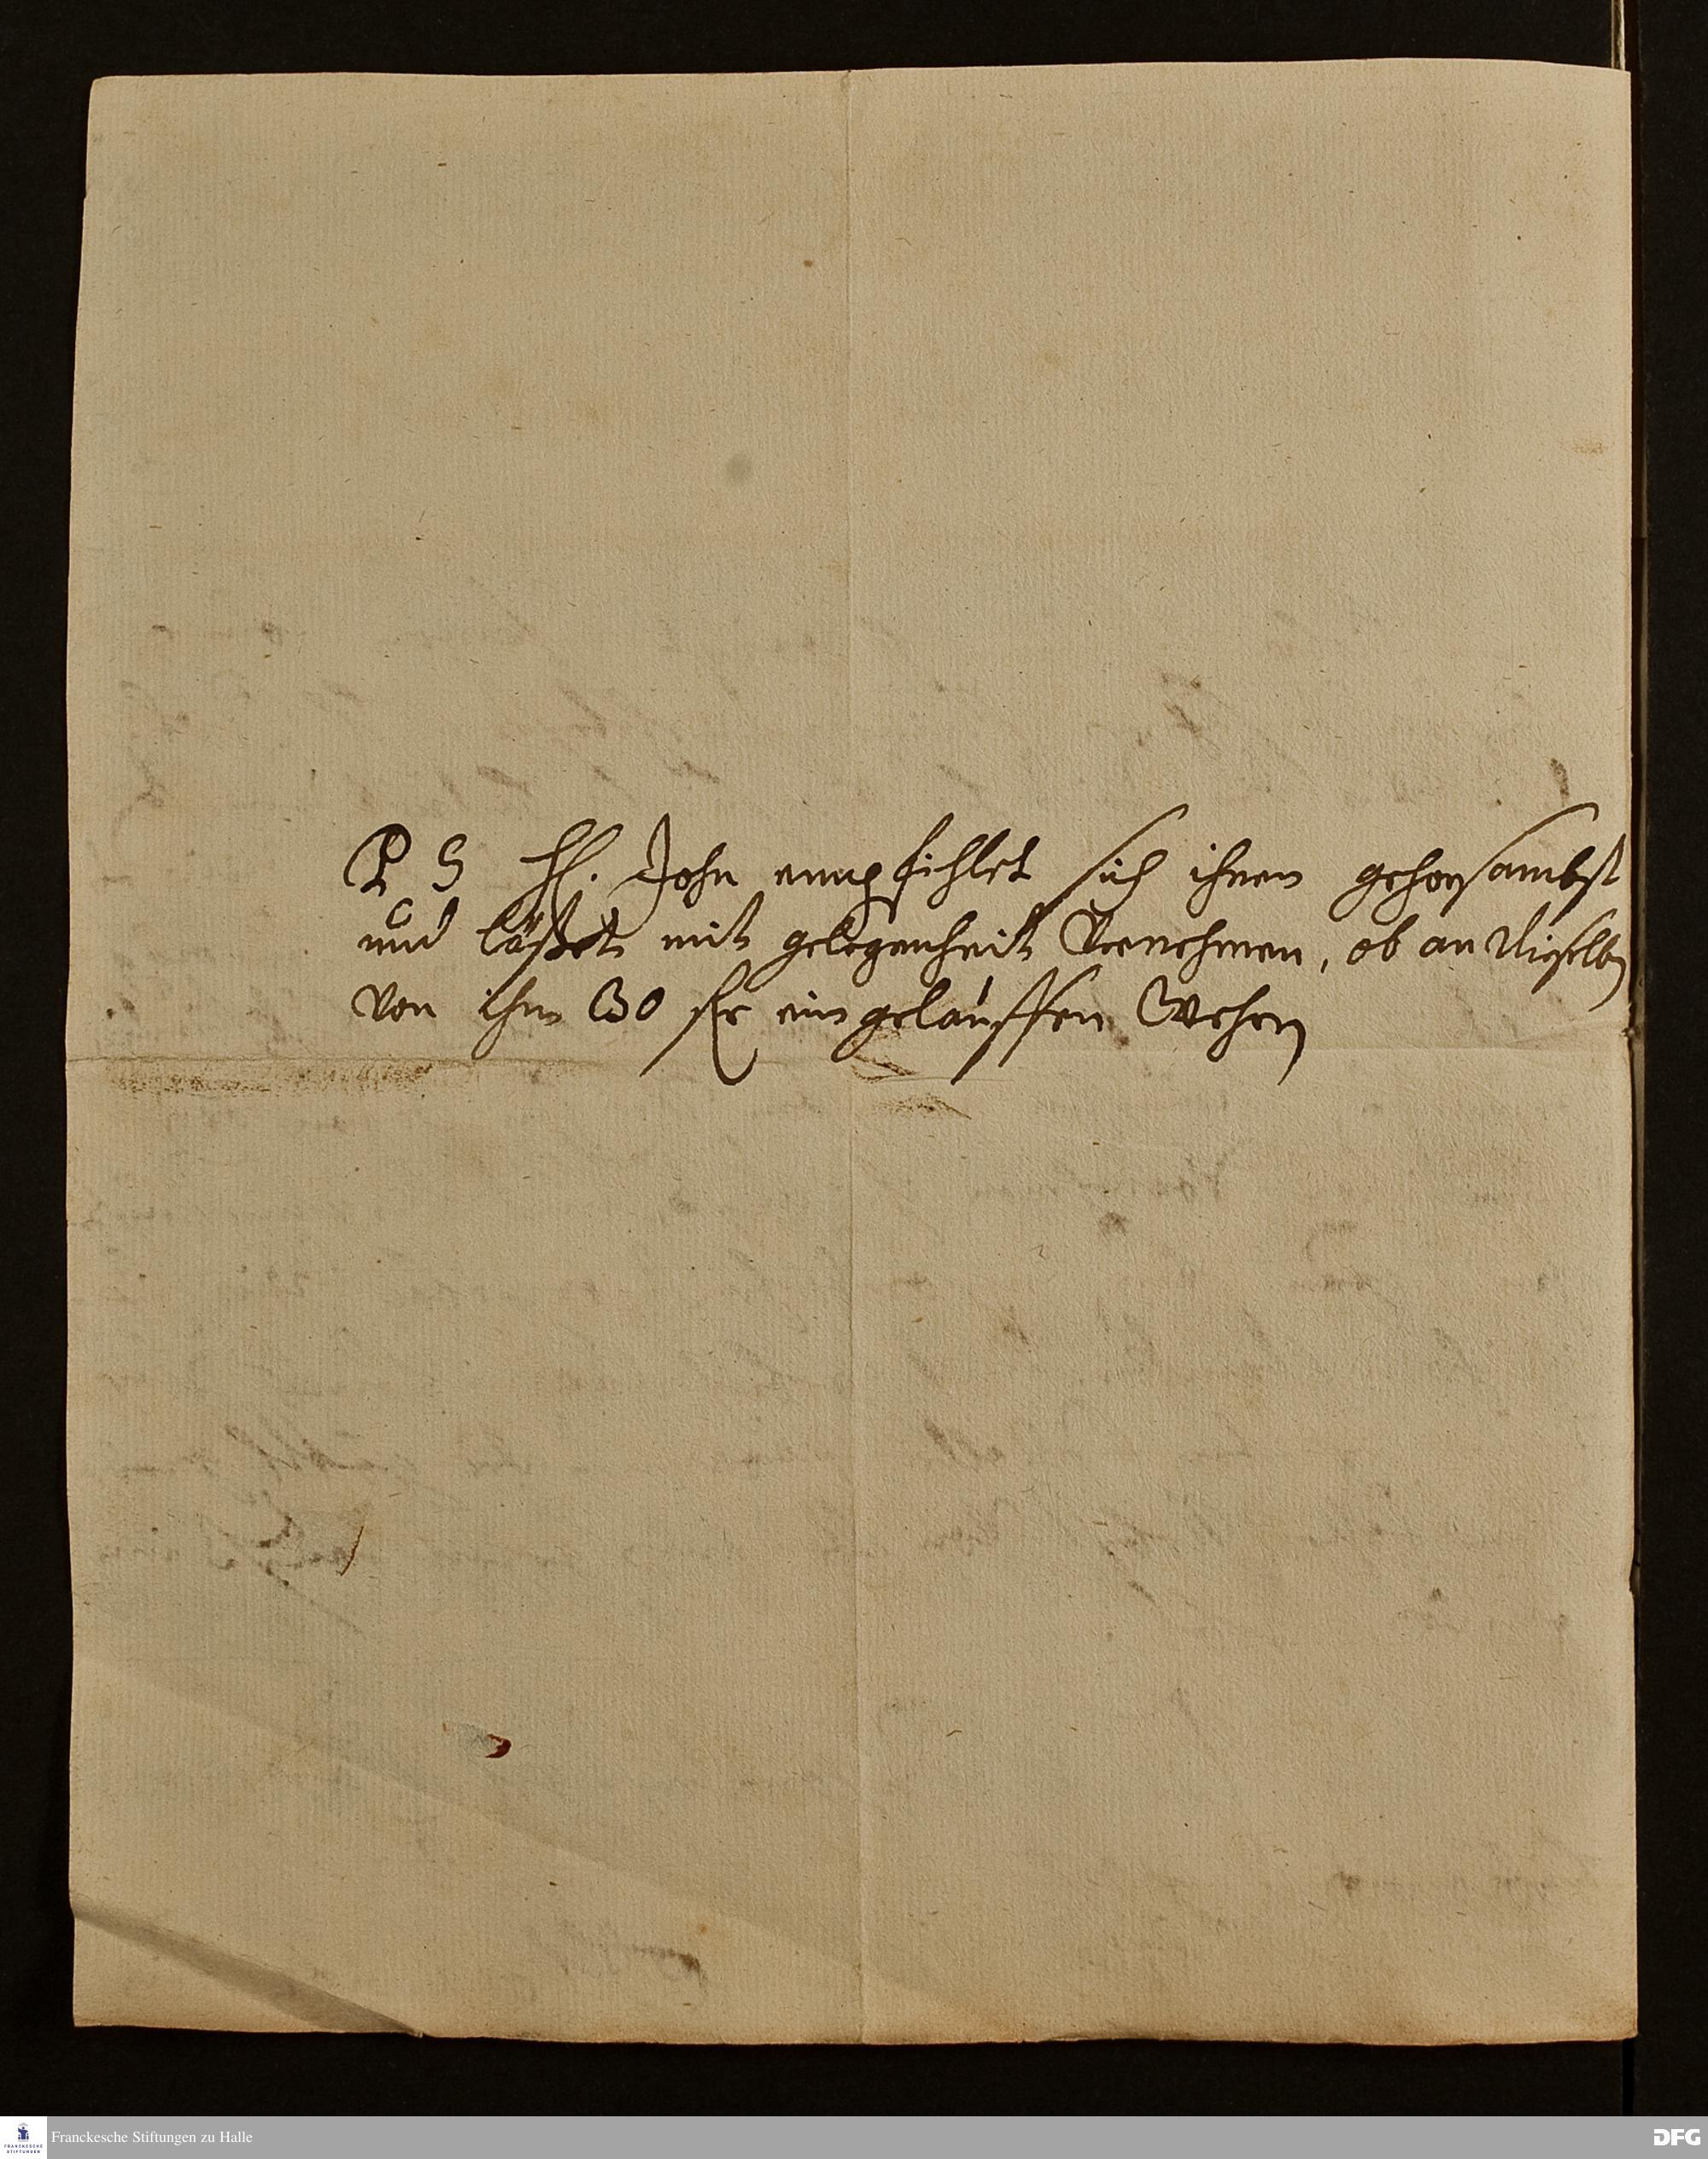 P S H. John empfihlet sich ihnen gehorsambst
und läßet mit gelegenheit Vernehmen, ob an dieselbe
von ihm 30 eingelauffen Wehren
Franckesche Stiftungen zu Halle
FRANCKESCHE
STIFTUNGEN
DFG